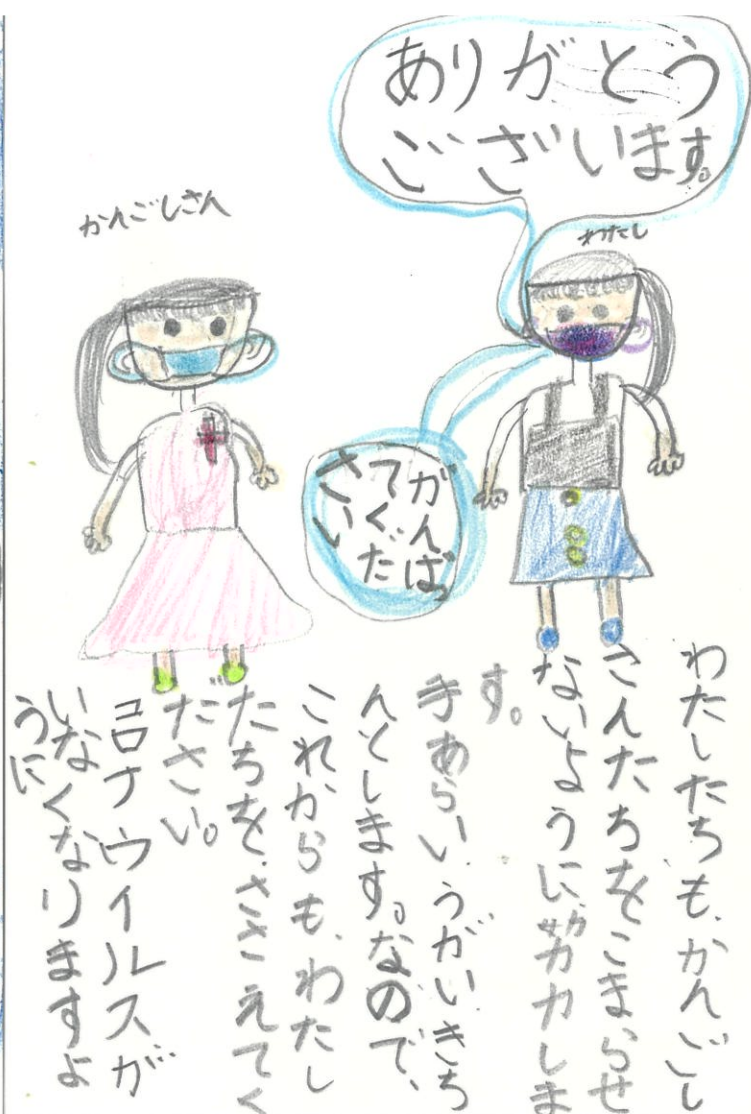 ありがとう
ございます。
かんごしさん
わたし
がんばっ
てくだ
さい
わたしたちも、かんごし
さんたちをこまらせ
ないように、努力しま
す。
手あらい、うがいきち
んとします。なので、
これからも、わたし
たちを、ささえてく
ださい。
コロナウイルスが
いなくなりますよ
うに